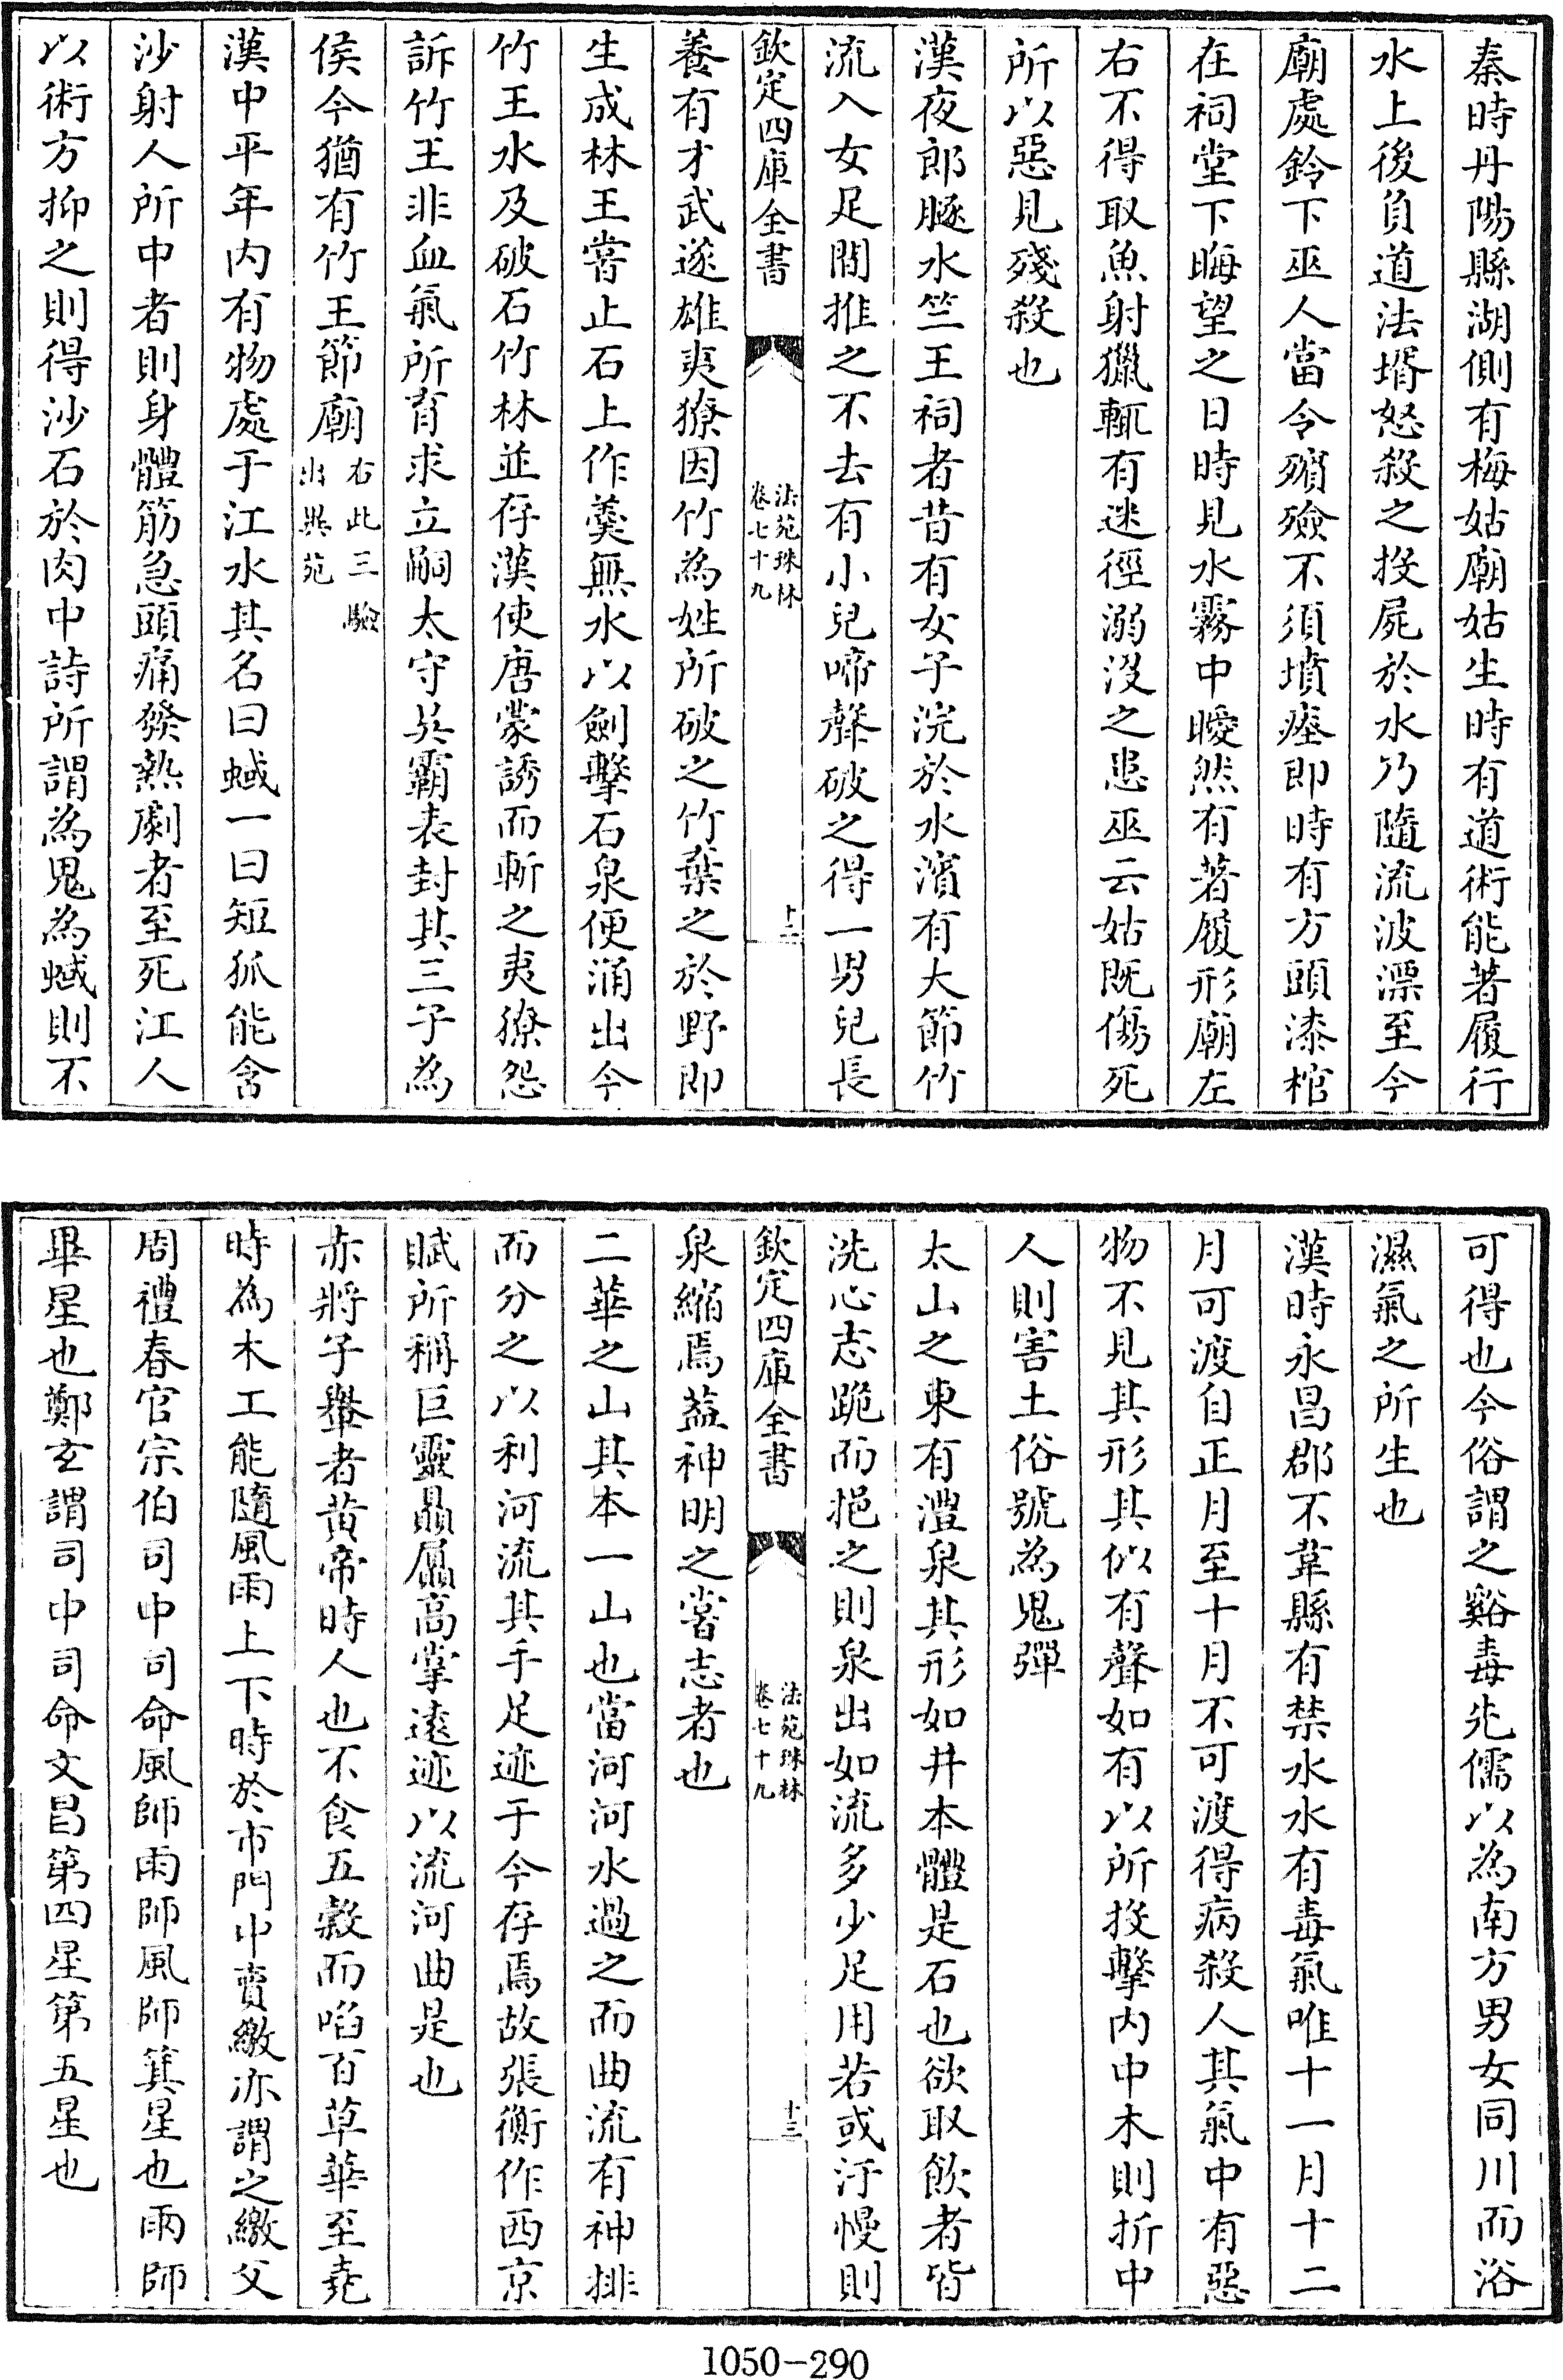 秦時丹陽縣湖側有梅姑廟姑生時有道術能著履行
水上後負道法壻怒殺之投屍於水乃隨流波漂至今
廟處鈴下巫人當令殯殮不須墳瘞即時有方頭漆棺
在祠堂下晦望之日時見水霧中曖然有著履形廟左
右不得取魚射獵輒有迷徑溺沒之患巫云姑既傷死
所以惡見殘殺也
漢夜郎豚水竺王祠者昔有女子浣於水濱有大節竹
流入女足間推之不去有小兒啼聲破之得一男兒長
欽定四庫全書
法苑珠林
卷七十九
十二
養有才武遂雄夷獠因竹為姓所破之竹葉之於野即
生成林王嘗止石上作羹無水以劍擊石泉便涌出今
竹王水及破石竹林並存漢使唐蒙誘而斬之夷獠怨
訴竹王非血氣所育求立嗣太守吳霸表封其三子為
侯今猶有竹王節廟
右此三驗
出異苑
漢中平年內有物處于江水其名曰蜮一曰短狐能含
沙射人所中者則身體筋急頭痛發熱劇者至死江人
以術方抑之則得沙石於肉中詩所謂為鬼為蜮則不
可得也今俗謂之谿毒先儒以為南方男女同川而浴
濕氣之所生也
漢時永昌郡不韋縣有禁水水有毒氣唯十一月十二
月可渡自正月至十月不可渡得病殺人其氣中有惡
物不見其形其似有聲如有以所投擊內中木則折中
人則害土俗號為鬼彈
太山之東有澧泉其形如井本體是石也欲取飲者皆
洗心志跪而挹之則泉出如流多少足用若或汙慢則
欽定四庫全書
法苑珠林
卷七十九
十三
泉縮焉葢神明之嘗志者也
二華之山其本一山也當河河水過之而曲流有神排
而分之以利河流其手足迹于今存焉故張衡作西京
賦所稱巨靈贔屭高掌遠迹以流河曲是也
赤將子轝者黃帝時人也不食五穀而啗百草華至堯
時為木工能隨風雨上下時於市門中賣繳亦謂之繳父
周禮春官宗伯司中司命風師雨師風師箕星也雨師
畢星也鄭玄謂司中司命文昌第四星第五星也
1050-290